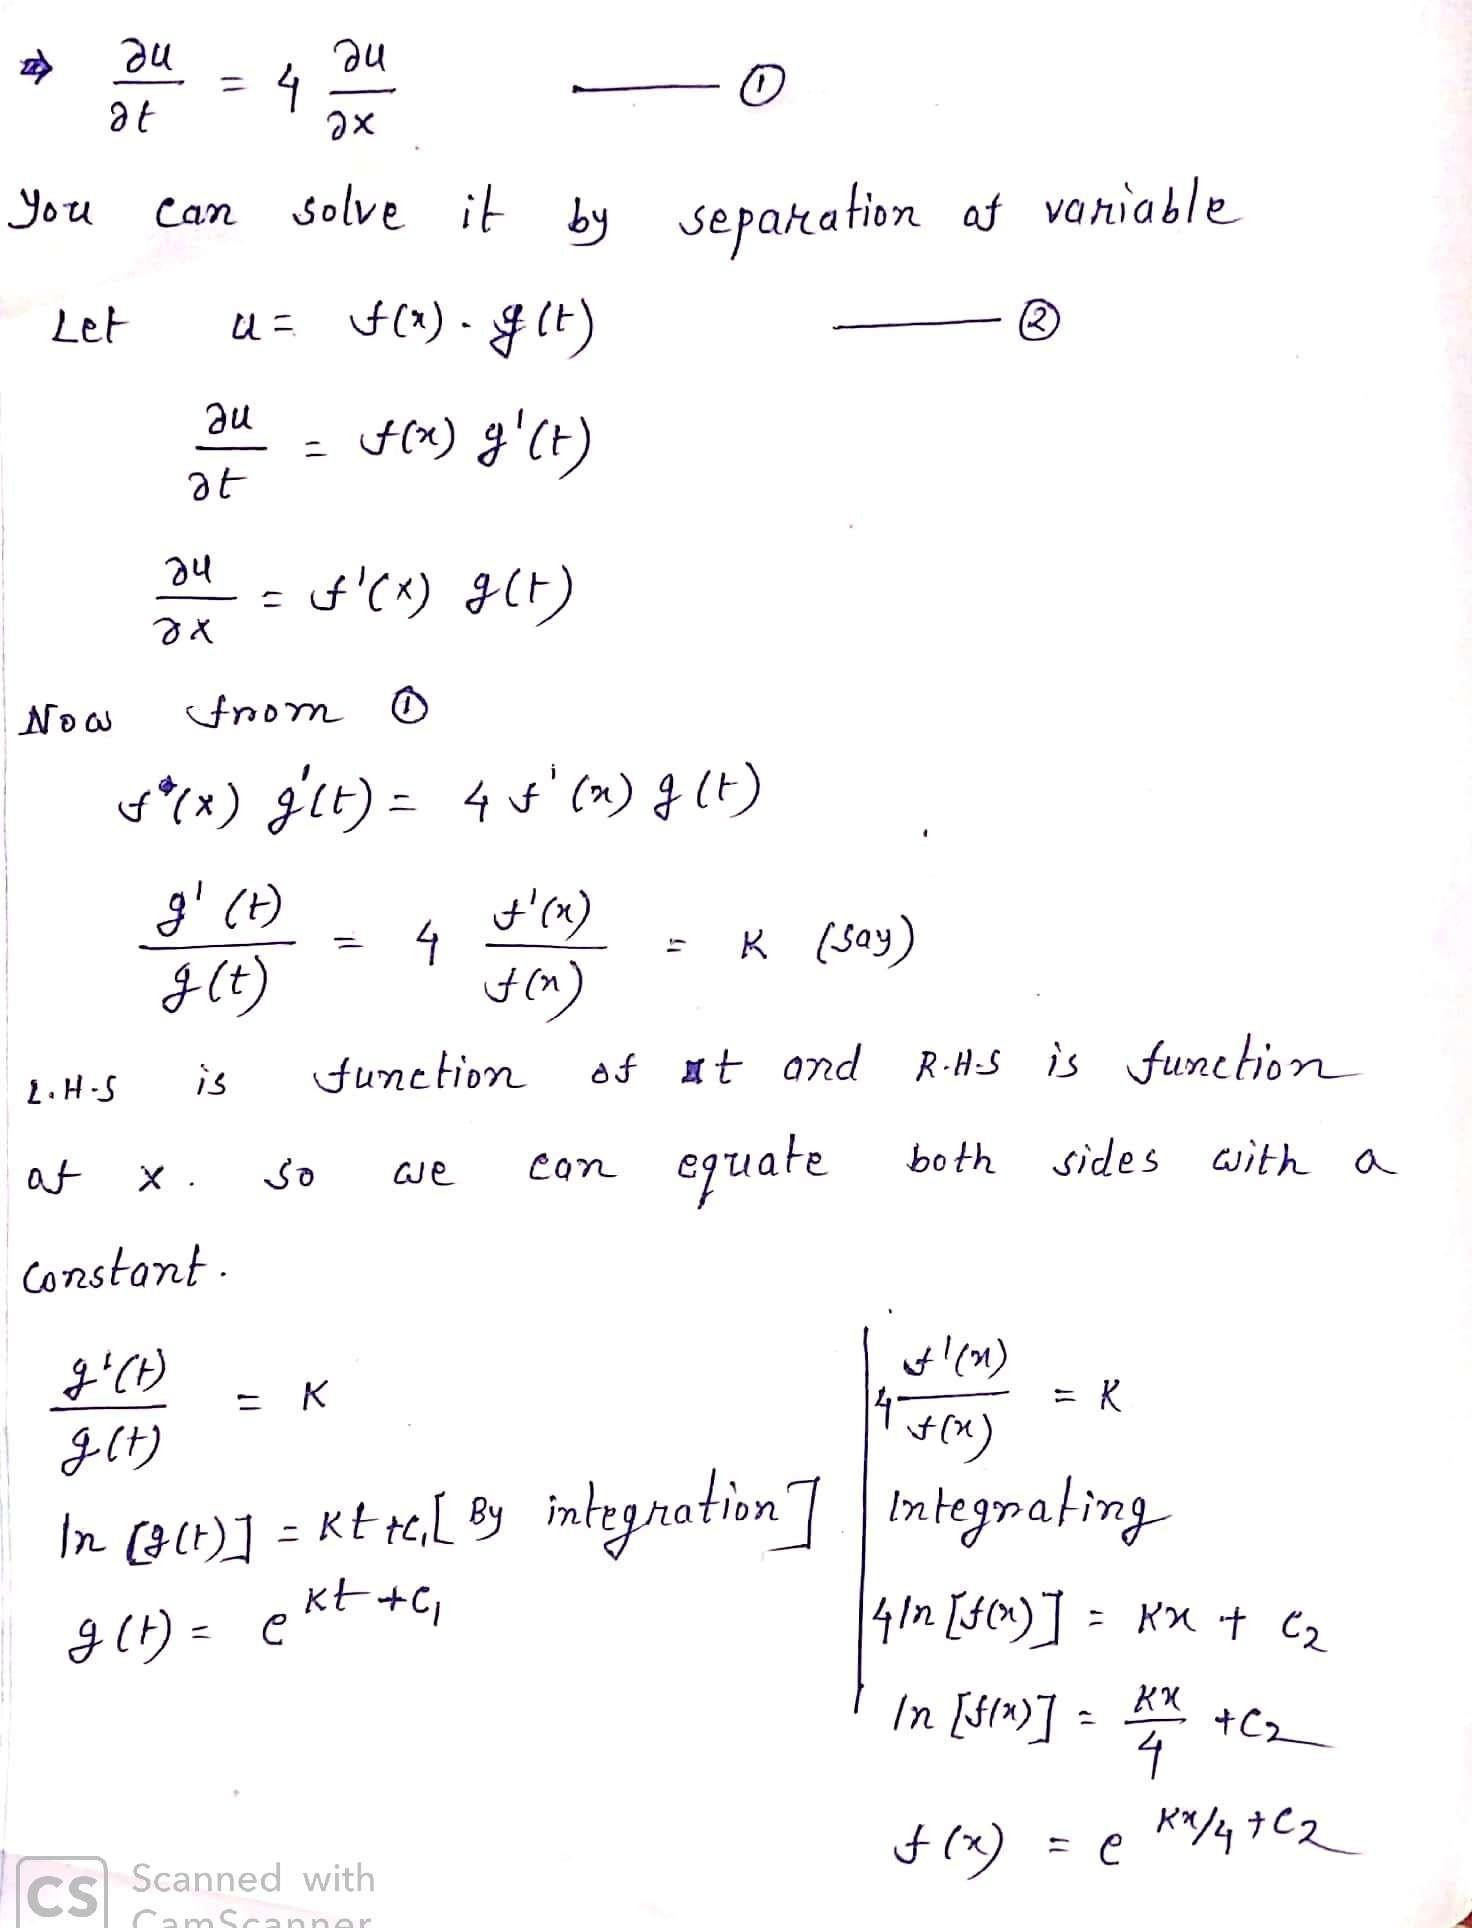 ⇒ ∂u/∂t = 4 ∂u/∂x —— ①
You can solve it by separation of variable
Let u = f(x) . g(t) —— ②
∂u/∂t = f(x) g'(t)
∂u/∂x = f'(x) g(t)
Now from ①
f(x) g'(t) = 4 f'(x) g(t)
g'(t)/g(t) = 4 f'(x)/f(x) = K (say)
L.H.S is function of t and R.H.S is function
of x. so we can equate both sides with a
constant.
g'(t)/g(t) = K
ln [g(t)] = Kt + C₁ [By integration]
g(t) = e^(Kt + C₁)
4 f'(x)/f(x) = K
Integrating
4 ln [f(x)] = Kx + C₂
ln [f(x)] = Kx/4 + C₂
f(x) = e^(Kx/4 + C₂)
CS Scanned with
CamScanner